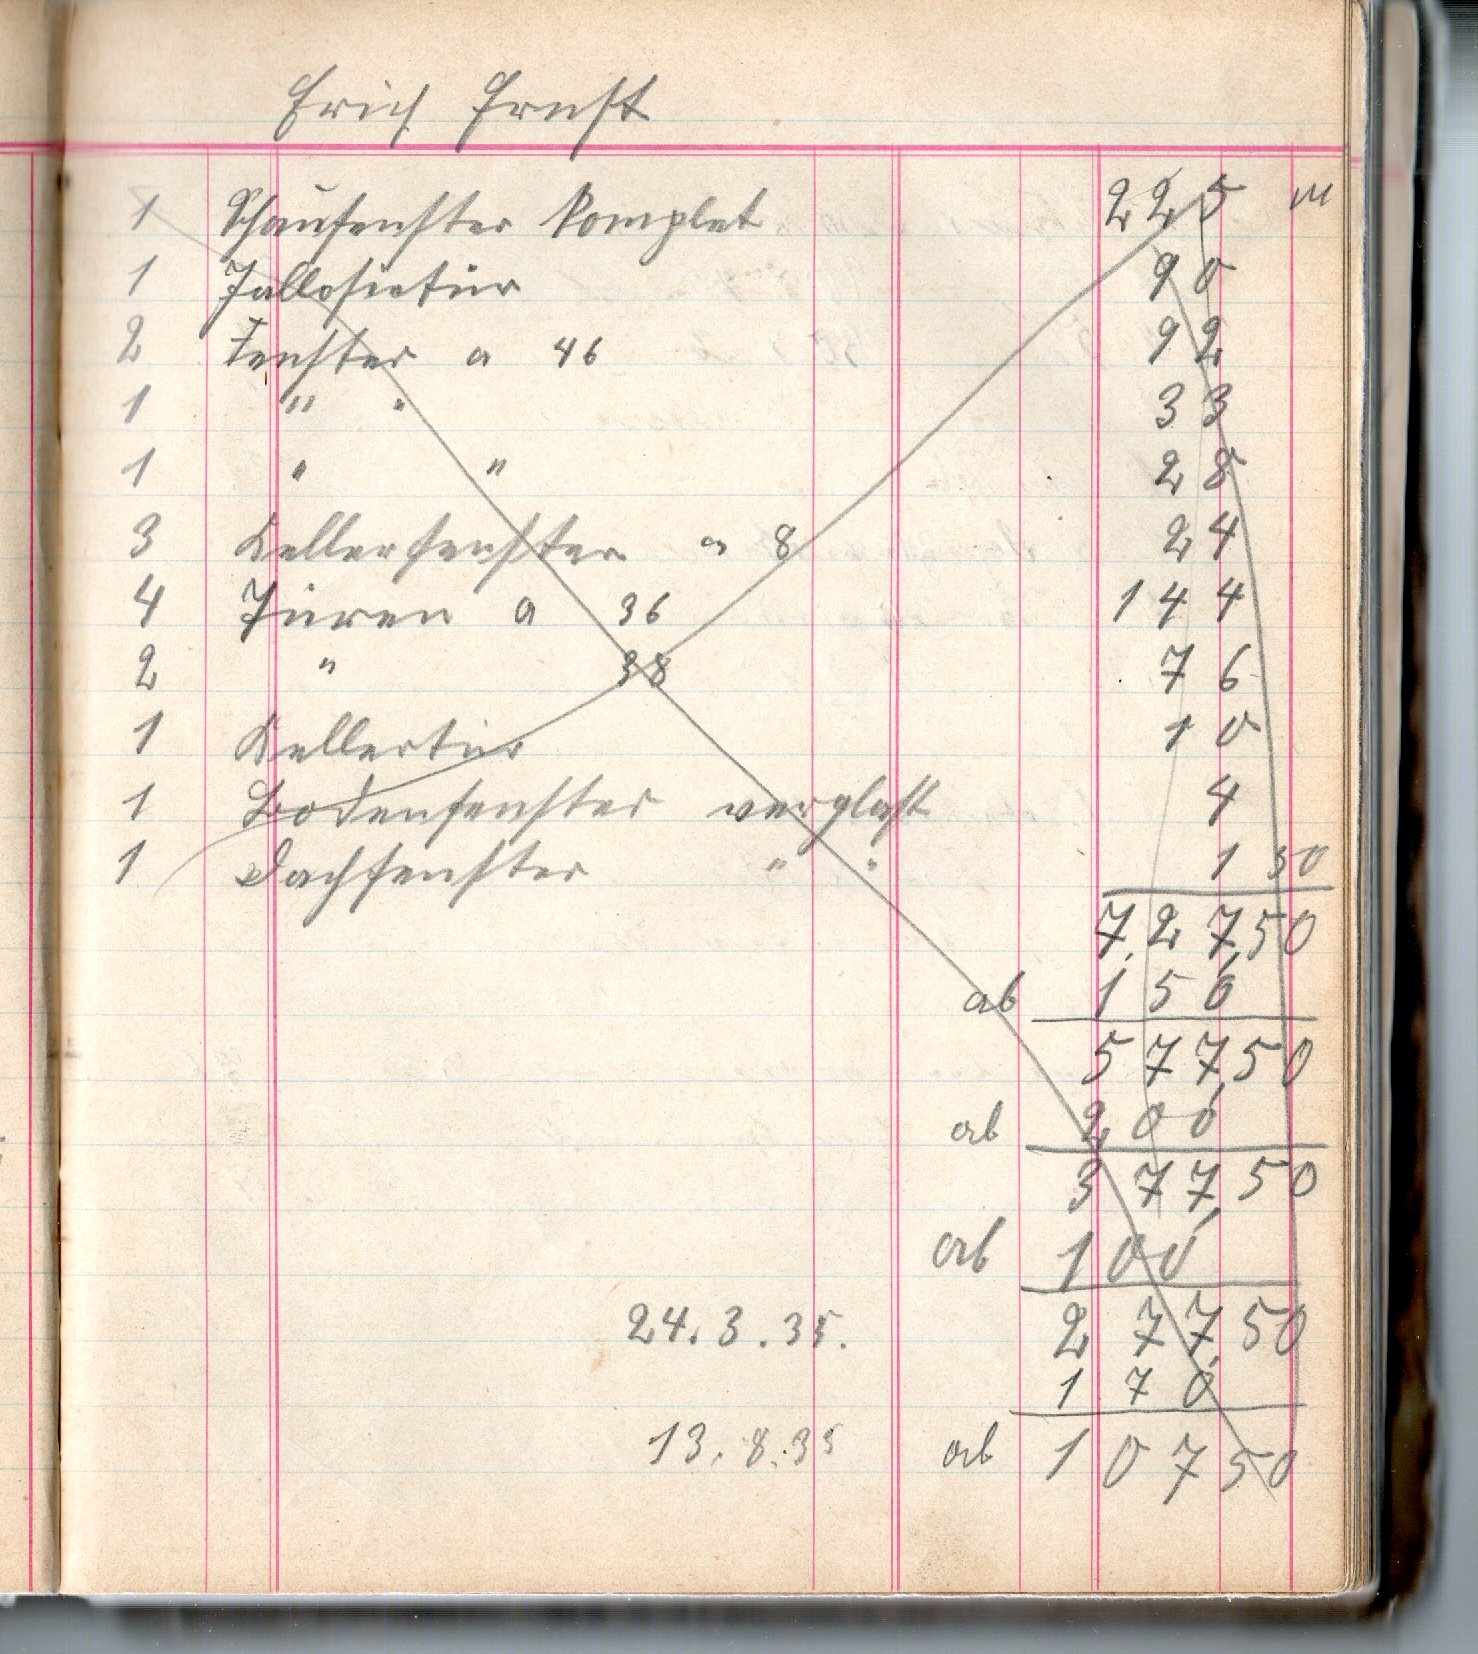 Erich Ernst
1 Schaufenster komplet 225 M
1 Jallosietür 90
2 Fenster a 46 92
1 " " 33
1 " " 28
3 Kellerfenster a 8 24
4 Türen a 36 144
2 " 38 76
1 Kellertür 10
1 Bodenfenster verglast 4
1 Dachfenster " " 1 50
727,50
ab 150
577,50
ab 200
377,50
ab 100
24.3.35. 277,50
170
13.8.35 ab 107 50